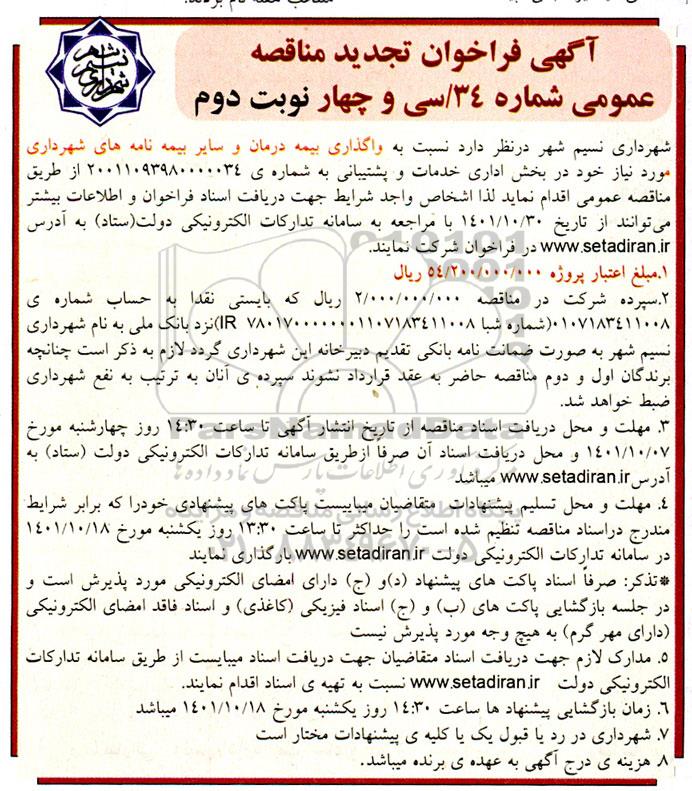 آگهی فراخوان تجدید مناقصه
عمومی شماره ۳۴/سی و چهار نوبت دوم
شهرداری نسیم شهر
شهرداری نسیم شهر درنظر دارد نسبت به واگذاری بیمه درمان و سایر بیمه نامه های شهرداری
مورد نیاز خود در بخش اداری خدمات و پشتیبانی به شماره ی ۲۰۰۱۱۰۹۳۹۸۰۰۰۰۰۳۴ از طریق
مناقصه عمومی اقدام نماید لذا اشخاص واجد شرایط جهت دریافت اسناد فراخوان و اطلاعات بیشتر
می‌توانند از تاریخ ۱۴۰۱/۱۰/۳۰ با مراجعه به سامانه تدارکات الکترونیکی دولت(ستاد) به آدرس
www.setadiran.ir در فراخوان شرکت نمایند.
۱.مبلغ اعتبار پروژه ۵۴/۲۰۰/۰۰۰/۰۰۰ ریال
۲.سپرده شرکت در مناقصه ۲/۰۰۰/۰۰۰/۰۰۰ ریال که بایستی نقدا به حساب شماره ی
۰۱۰۷۱۸۳۴۱۱۰۰۸(شماره شبا IR ۷۸۰۱۷۰۰۰۰۰۰۰۱۱۰۷۱۸۳۴۱۱۰۰۸)نزد بانک ملی به نام شهرداری
نسیم شهر به صورت ضمانت نامه بانکی تقدیم دبیرخانه این شهرداری گردد لازم به ذکر است چنانچه
برندگان اول و دوم مناقصه حاضر به عقد قرارداد نشوند سپرده ی آنان به ترتیب به نفع شهرداری
ضبط خواهد شد.
۳. مهلت و محل دریافت اسناد مناقصه از تاریخ انتشار آگهی تا ساعت ۱۴:۳۰ روز چهارشنبه مورخ
۱۴۰۱/۱۰/۰۷ و محل دریافت اسناد آن صرفاً ازطریق سامانه تدارکات الکترونیکی دولت (ستاد) به
آدرسwww.setadiran.ir میباشد
۴. مهلت و محل تسلیم پیشنهادات متقاضیان میبایست پاکت های پیشنهادی خودرا که برابر شرایط
مندرج دراسناد مناقصه تنظیم شده است را حداکثر تا ساعت ۱۳:۳۰ روز یکشنبه مورخ ۱۴۰۱/۱۰/۱۸
در سامانه تدارکات الکترونیکی دولت www.setadiran.ir بارگذاری نمایند
*تذکر: صرفاً اسناد پاکت های پیشنهاد (د)و (ج) دارای امضای الکترونیکی مورد پذیرش است و
در جلسه بازگشایی پاکت های (ب) و (ج) اسناد فیزیکی (کاغذی) و اسناد فاقد امضای الکترونیکی
(دارای مهر گرم) به هیچ وجه مورد پذیرش نیست
۵. مدارک لازم جهت دریافت اسناد متقاضیان جهت دریافت اسناد میبایست از طریق سامانه تدارکات
الکترونیکی دولت www.setadiran.ir نسبت به تهیه ی اسناد اقدام نمایند.
۶. زمان بازگشایی پیشنهاد ها ساعت ۱۴:۳۰ روز یکشنبه مورخ ۱۴۰۱/۱۰/۱۸ میباشد
۷. شهرداری در رد یا قبول یک یا کلیه ی پیشنهادات مختار است
۸. هزینه ی درج آگهی به عهده ی برنده میباشد.
ParsNamadData